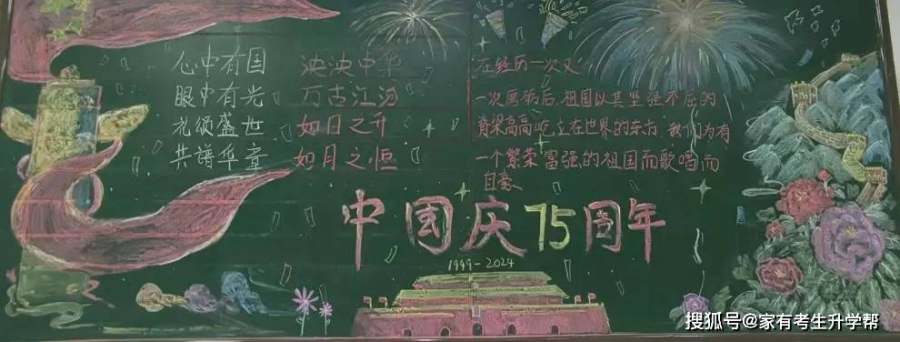 心中有国
眼中有光
颂盛世
共谱华章
泱泱中华
万古江河
如日之升
如月之恒
在经历一次又
一次磨砺后,祖国以其坚强不屈的
脊梁高高屹立在世界的东方,我们为有
一个繁荣富强的祖国而歌唱而
自豪
中国庆75周年
1949-2024
搜狐号@家有考生升学帮